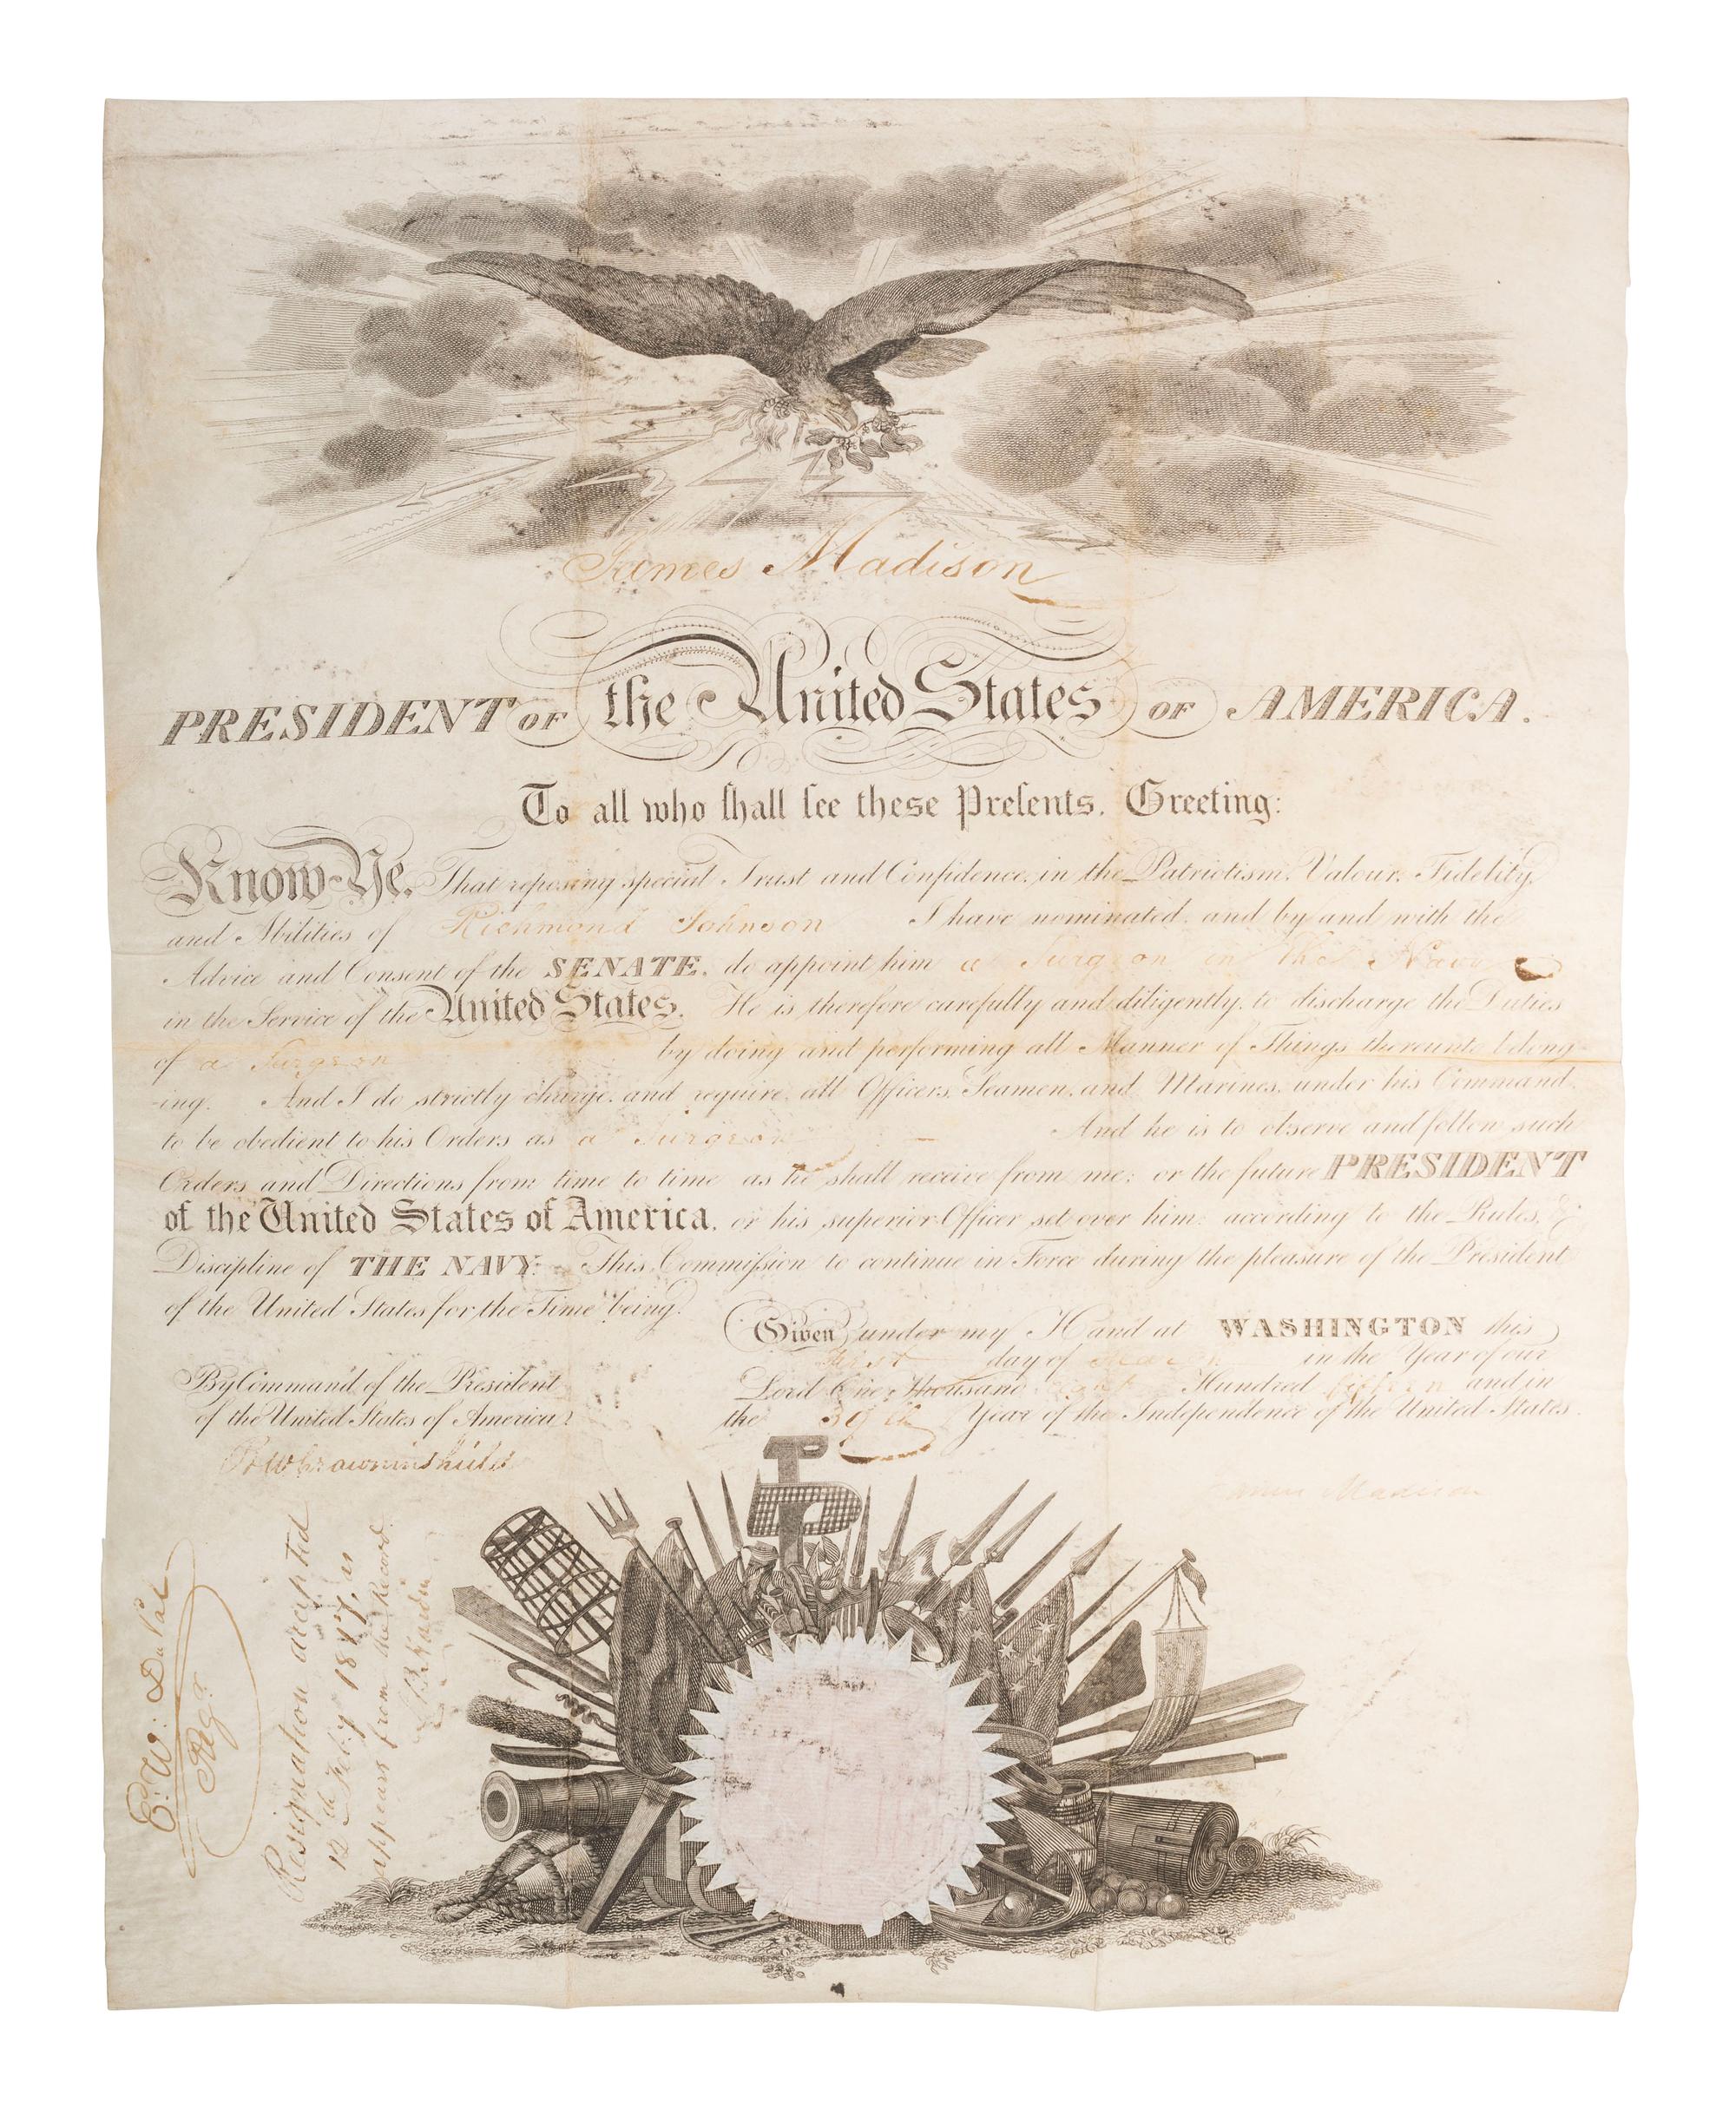 James Madison
PRESIDENT OF the United States OF AMERICA.
To all who ſhall ſee these Preſents, Greeting:
Know Ye, That reposing special Trust and Confidence in the Patriotism, Valour, Fidelity,
and Abilities of Richmond Johnson I have nominated, and by and with the
Advice and Consent of the SENATE, do appoint him a Surgeon in the Navy
in the Service of the United States. He is therefore carefully and diligently to discharge the Duties
of a Surgeon by doing and performing all Manner of Things thereunto belong-
-ing. And I do strictly charge, and require all Officers, Seamen, and Marines, under his Command
to be obedient to his Orders as a Surgeon – And he is to observe and follow such
Orders and Directions from time to time as he shall receive from me, or the future PRESIDENT
of the United States of America, or his superior Officer set over him, according to the Rules, &
Discipline of THE NAVY. This Commiſsion to continue in Force during the pleasure of the President
of the United States for the Time being.
Given under my Hand at WASHINGTON this
First day of March in the Year of our
Lord One Thousand eight Hundred fifteen and in
the 39th Year of the Independence of the United States.
By Command of the President
of the United States of America
BW Crowninshield
James Madison
E. W. DuVal
Reg.
Resignation accepted
12th Feby 1817, as
appears from the Record.